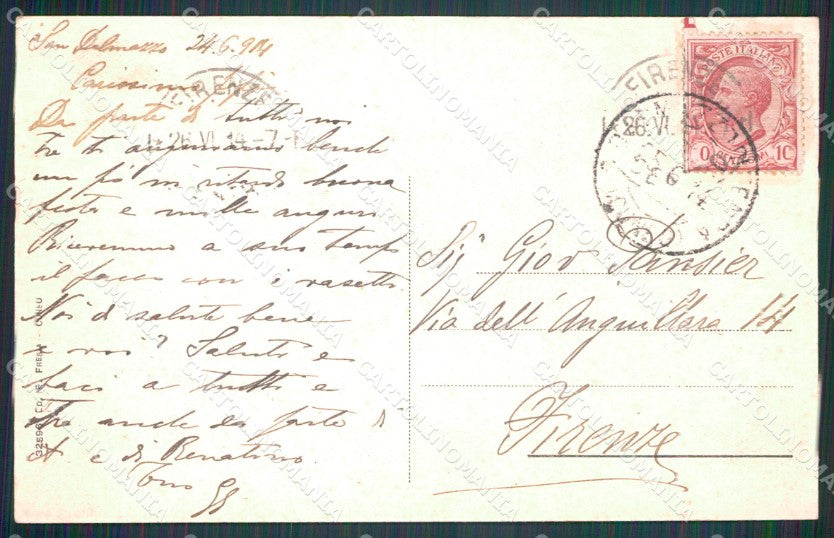 San Dalmazzo 24.6.914
Carissimo
Da parte di tutti noi
ti auguriamo benché
un pò in ritardo buona
festa e mille auguri
Ricevemmo a suo tempo
il pacco con i vasetti
Noi di salute bene
e voi? Saluti e
baci a tutti e
anche da parte di
A. e di Renatino
Tuo
32596 ED. FRESIA - CUNEO
FIRENZE
26.VI.14-7
POSTE ITALIANE
10 10
FIRENZE
26.VI
Sigr Giov Sansier
Via dell' Anguillara 14
Firenze
CARTOLINOMANIA